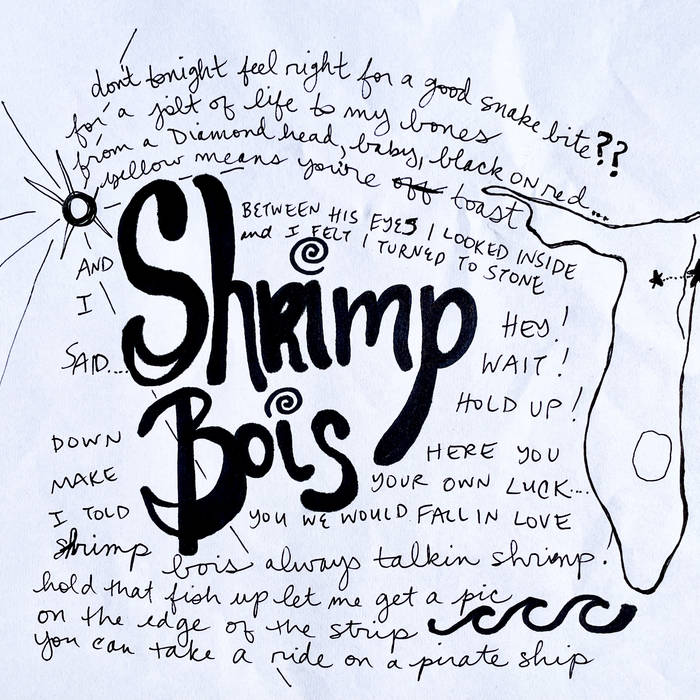 don't tonight feel right for a good snake bite??
for a jolt of life to my bones
from a Diamond head, baby, black on red...
yellow means you're off toast
BETWEEN HIS EYES I LOOKED INSIDE
and I FELT I TURNED TO STONE
AND
I
SAID....
Shrimp
Bois
HEY!
WAIT!
HOLD UP!
DOWN HERE YOU
MAKE YOUR OWN LUCK....
I TOLD YOU WE WOULD FALL IN LOVE
shrimp bois always talkin shrimp!
hold that fish up let me get a pic
on the edge of the strip
you can take a ride on a pirate ship